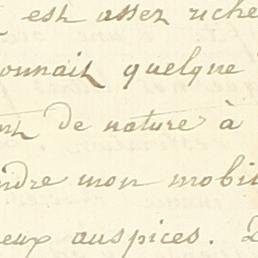 est assez riche
onnait quelque
nt de nature à
ndre mon mobi
eux auspices.